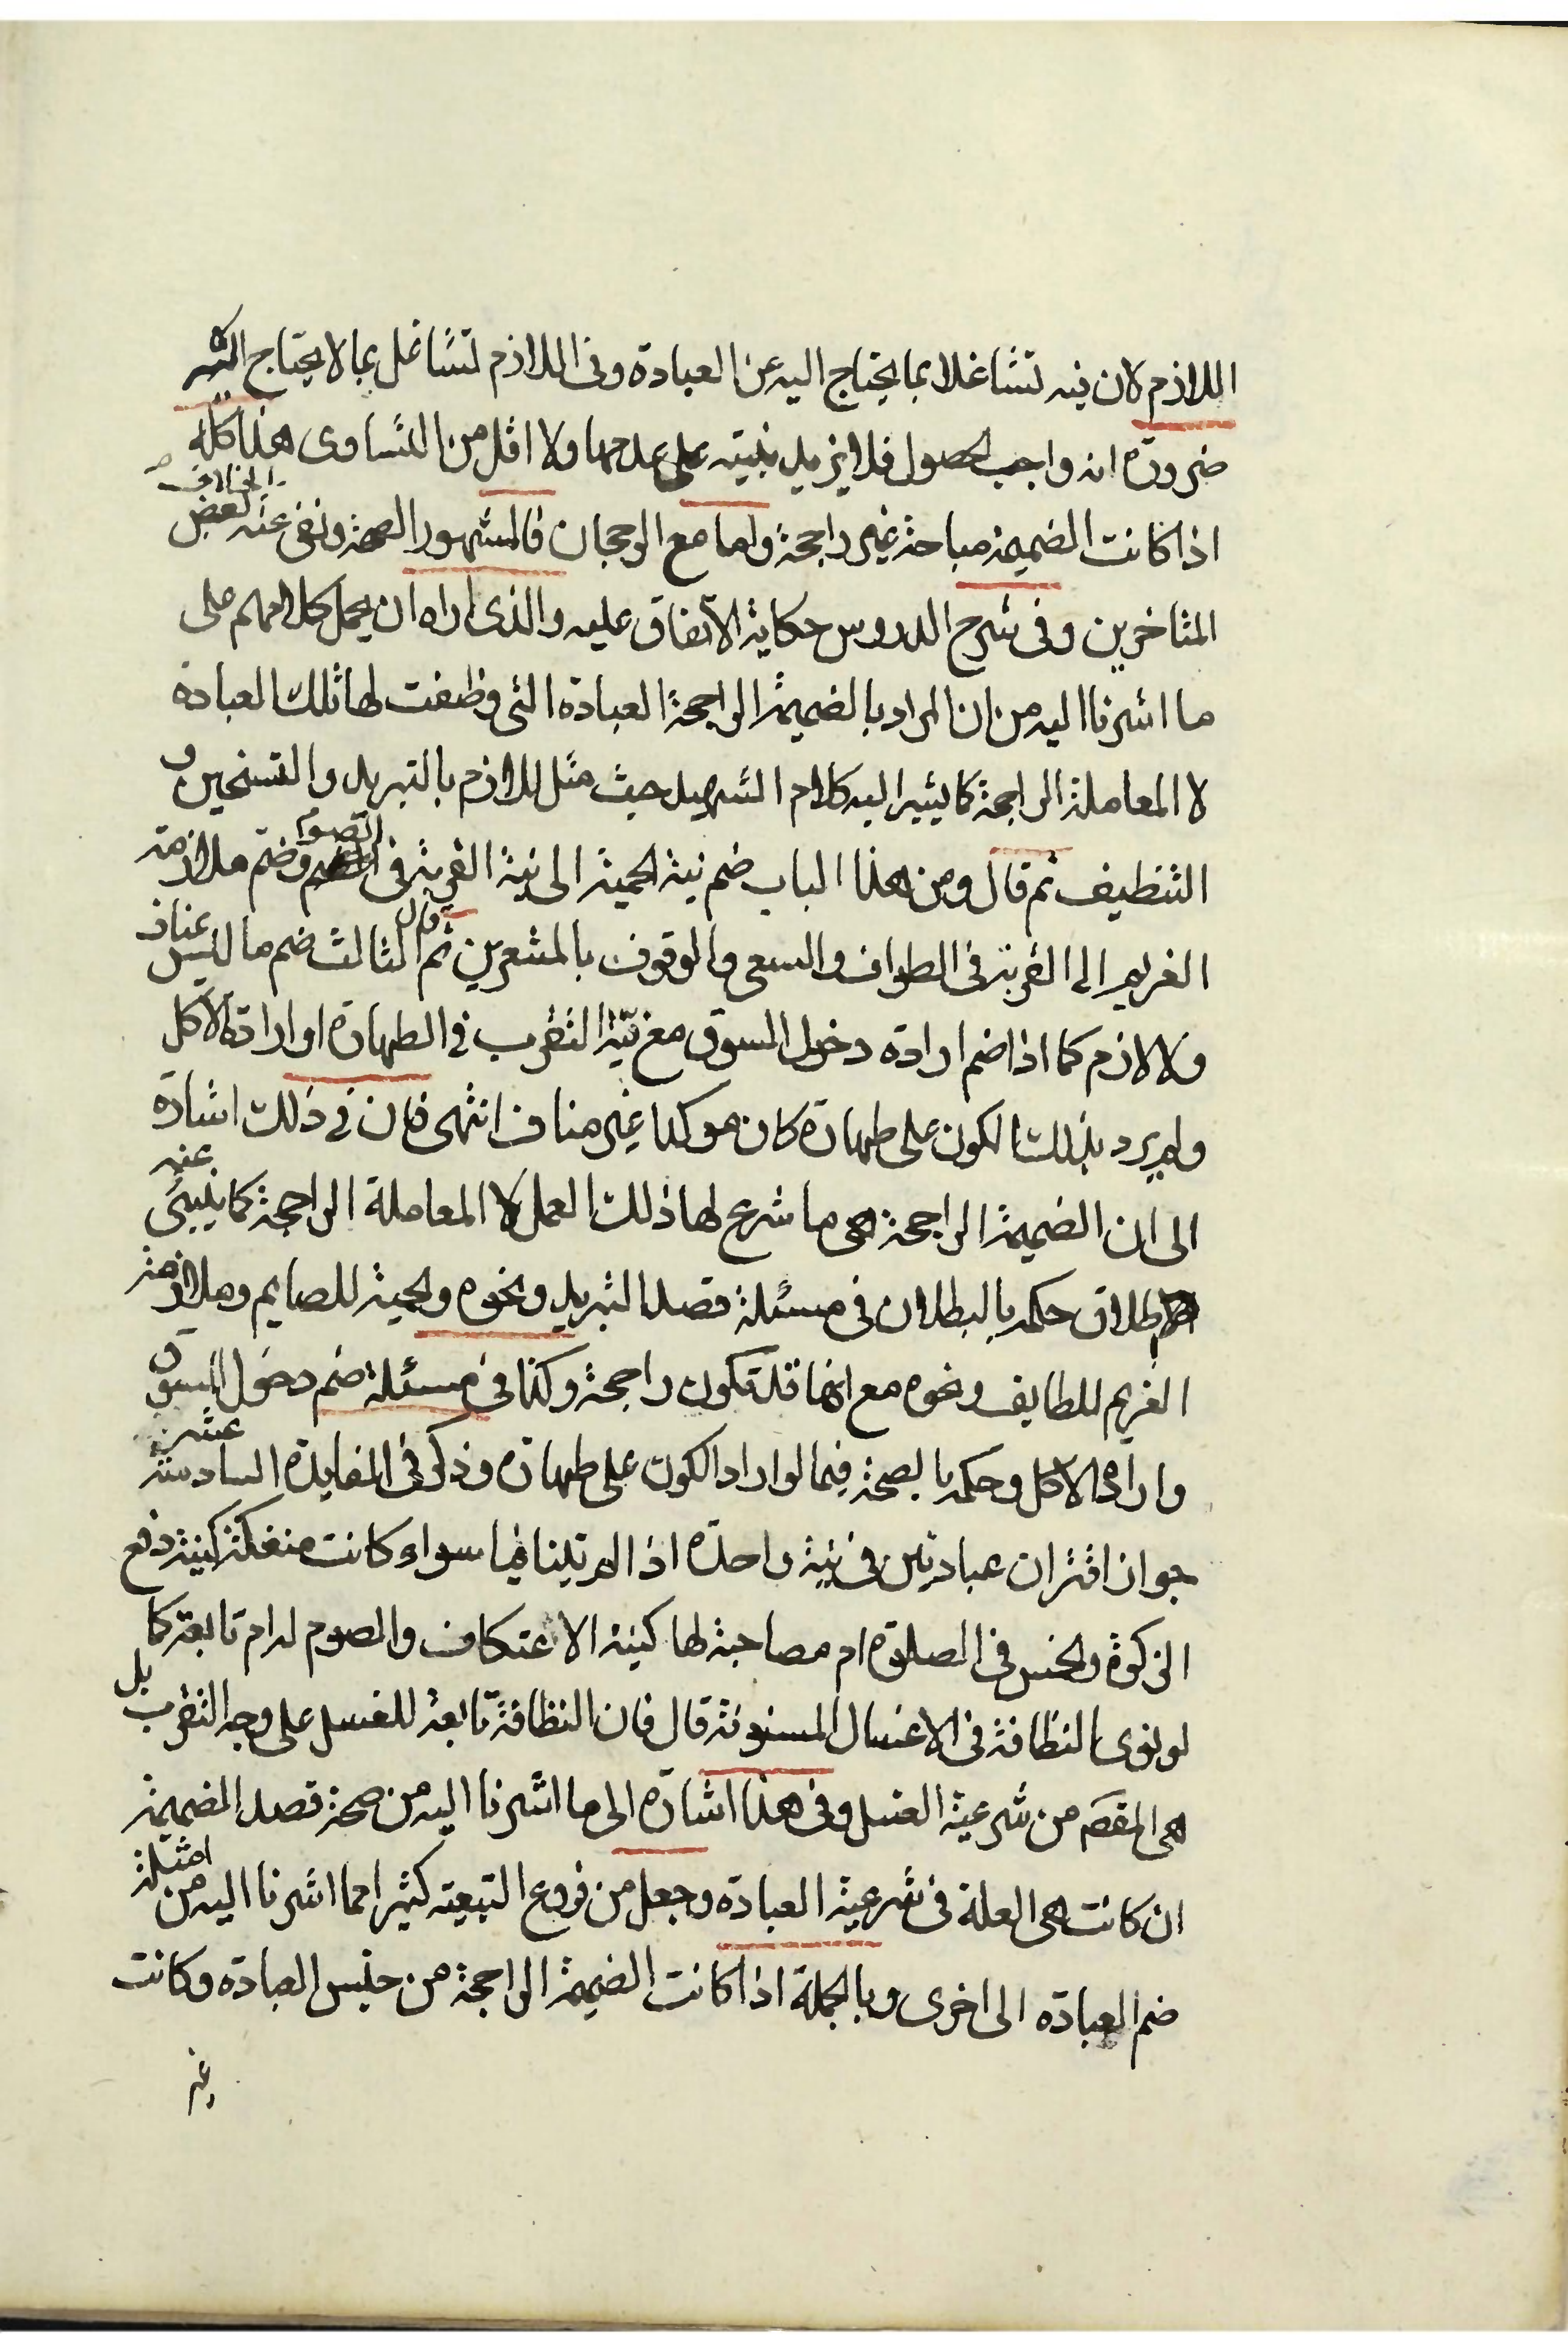 اللازم لان فيه تشاغلا بما يحتاج اليه عن العبادة وفى اللازم تشاغل بما لا يحتاج اليه
ضرورة انه واجب الحصول فلا يزيد بنيته على عدمها ولا اقل من التساوى هذا كله
اذا كانت الضميمة مباحة غير راجحة واما مع الرجحان فالمشهور الصحة ونفى عنه الخلاف بعض
المتاخرين وفى شرح الدروس حكاية الاتفاق عليه والذى اراه ان يحمل كلامهم على
ما اشرنا اليه من ان المراد بالضميمة الراجحة العبادة التى وظفت لها تلك العبادة
لا المعاملة الراجحة كما يشير اليه كلام الشهيد حيث مثل للازم بالتبريد والتسخين و
التنظيف ثم قال ومن هذا الباب ضم نية الحمية الى نية القربة فى الصوم وضم ملازمة
الغريم الى القربة فى الطواف والسعى والوقوف بالمشعرين ثم قال الثالث ضم ما ليس بمناف
ولا لازم كما اذا ضم ارادة دخول السوق مع نية التقرب فى الطهارة او ارادة الاكل
ولم يرد بذلك الكون على طهارة كان موكدا غير مناف انتهى فان فى ذلك اشارة
الى ان الضميمة الراجحة هى ما شرع لها ذلك العمل لا المعاملة الراجحة كما ينبئ عنه
اطلاق حكمه بالبطلان فى مسئلة قصد التبريد ونحوه والحمية للصايم وملازمة
الغريم للطايف ونحوه مع انها قد تكون راجحة وكذا فى مسئلة ضم دخول السوق
وارادة الاكل وحكمه بالصحة فيما لو اراد الكون على طهارة وذكر فى الفايدة السادسة عشر
جواز اقتران عبادتين فى نية واحدة اذا لم يتنافيا سواء كانت منفكة كنية دفع
الزكوة والخمس فى الصلوة ام مصاحبة لها كنية الاعتكاف والصوم له ام تابعة كما
لو نوى النظافة فى الاغسال المسنونة قال فان النظافة تابعة للغسل على وجه التقرب بل
هى المقصَم من شرعية الغسل وفى هذا اشارة الى ما اشرنا اليه من صحة قصد الضميمة
ان كانت هى العلة فى شرعية العبادة وجعل من فروع التبعية كثيرا مما اشرنا اليه من امثلة
ضم العبادة الى اخرى وبالجملة اذا كانت الضميمة الراجحة من جنس العبادة وكانت
غير